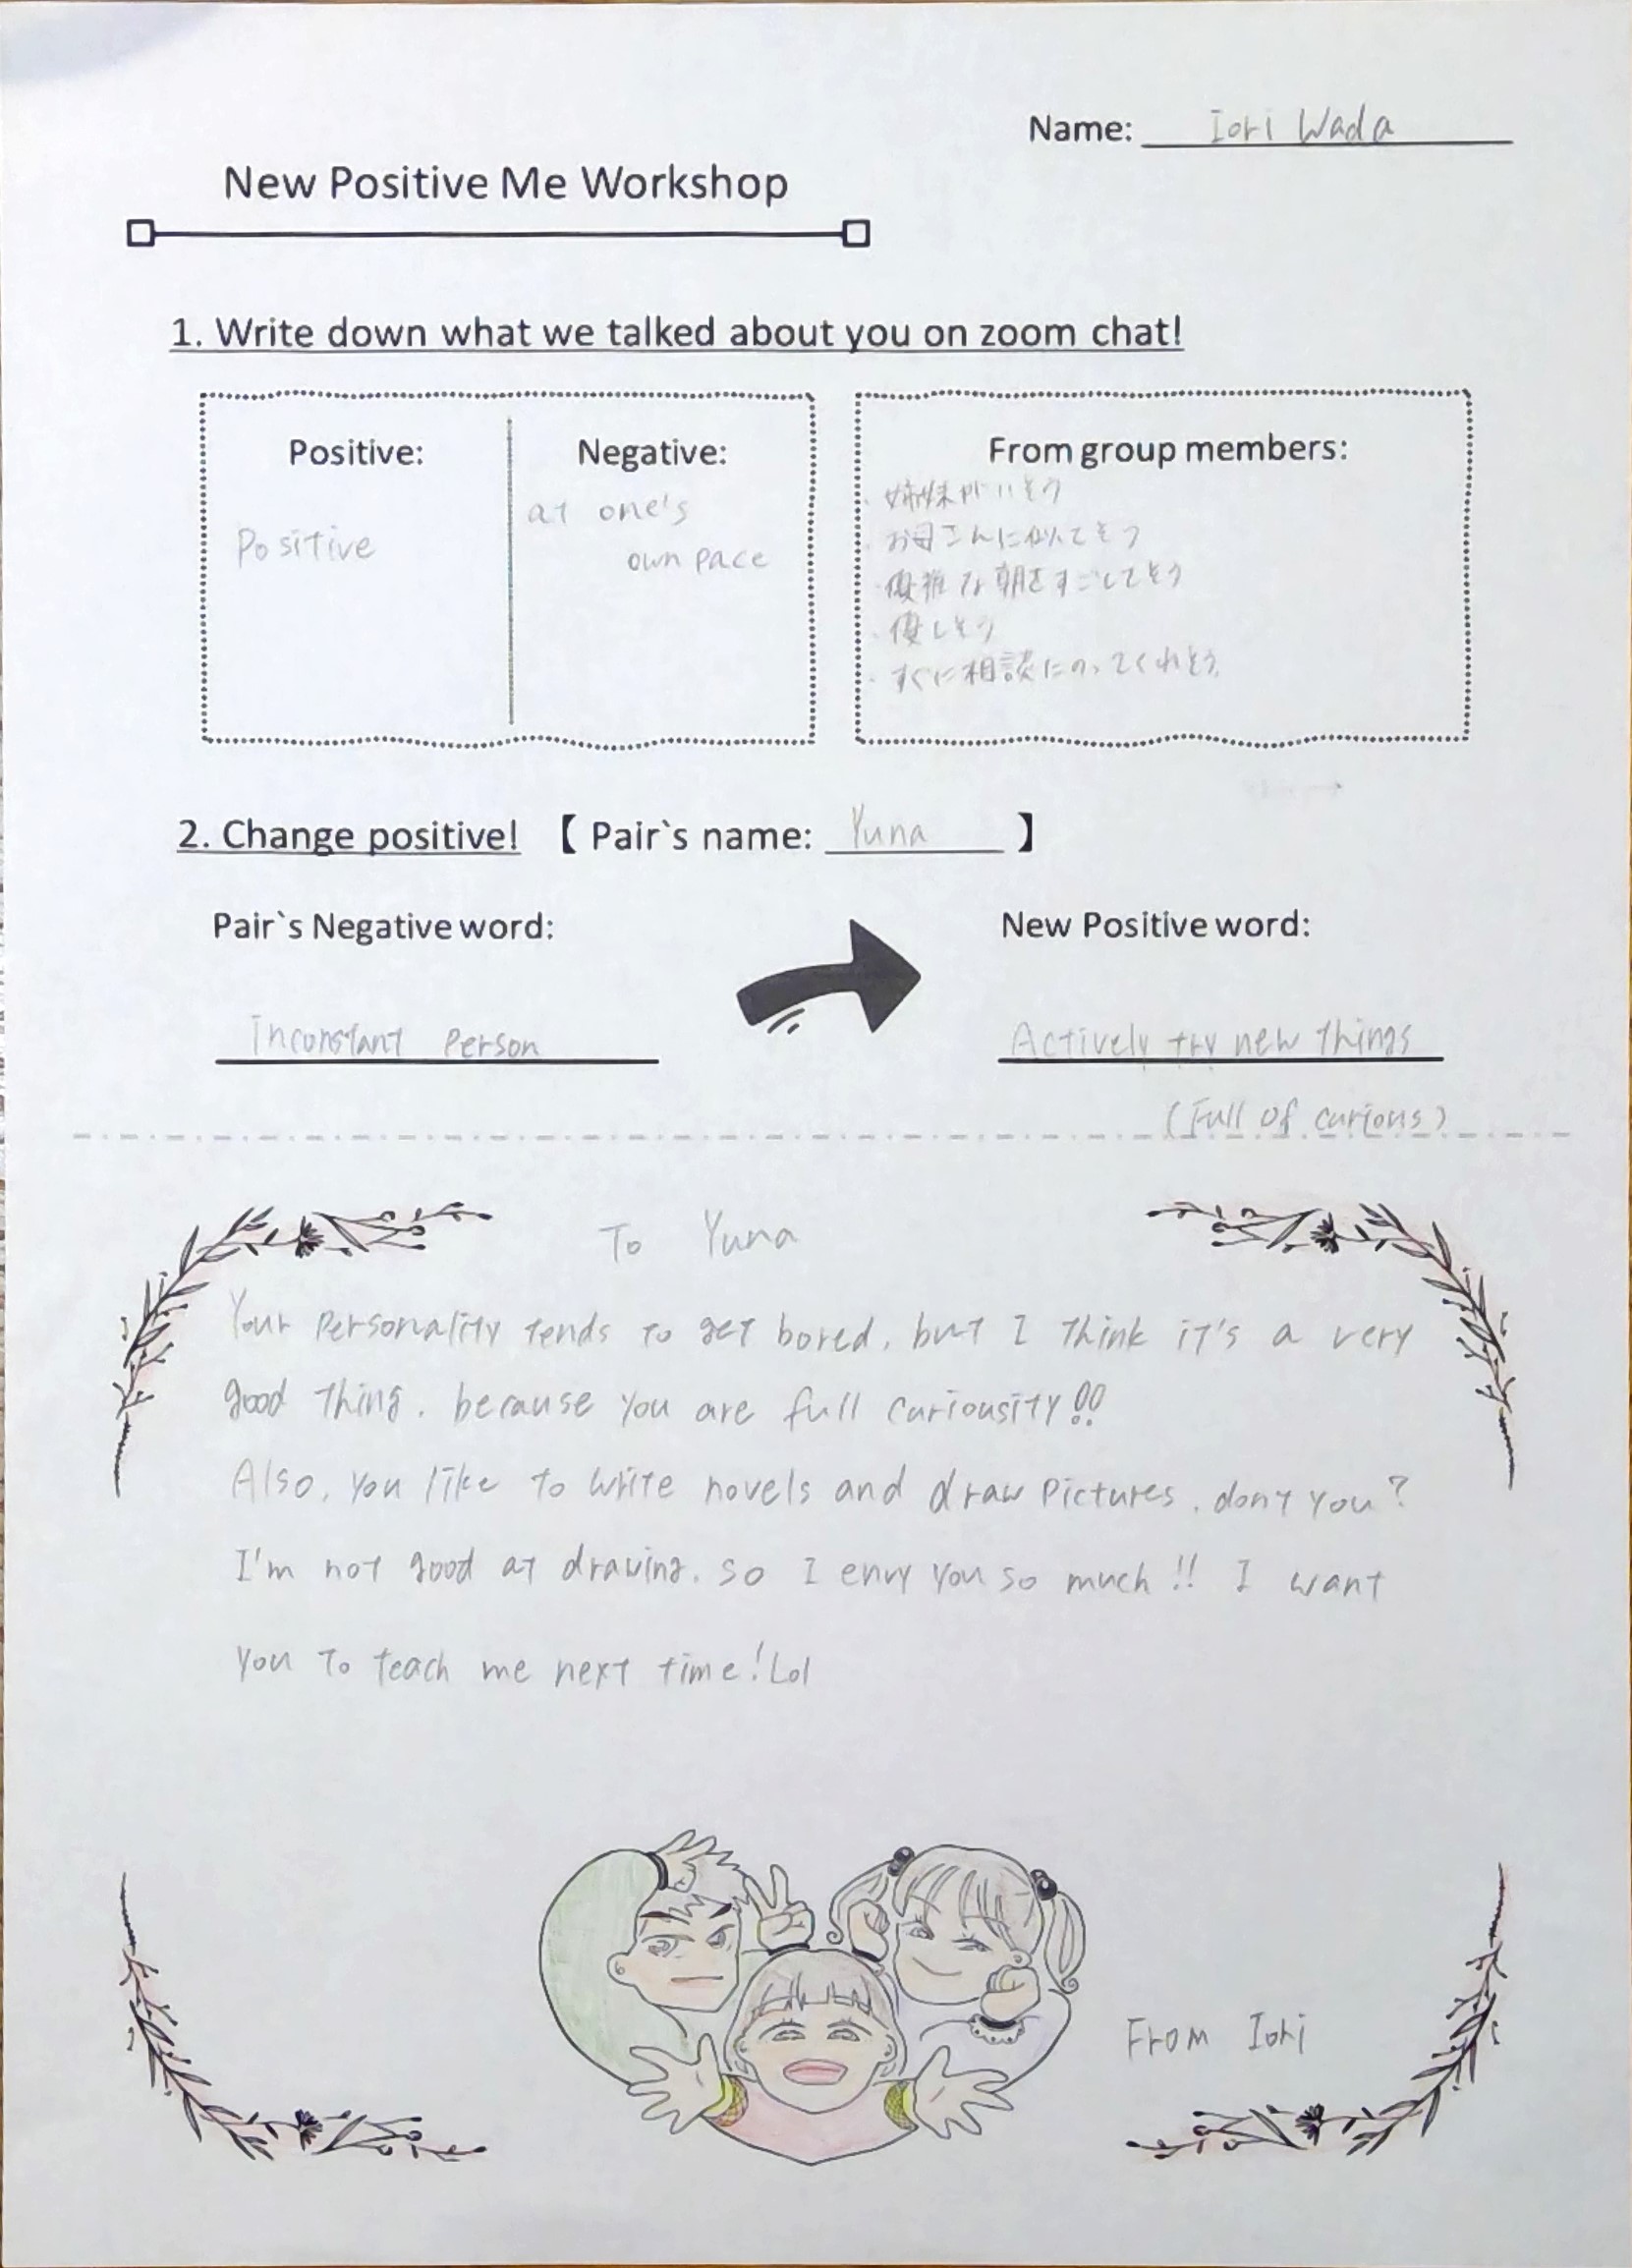 Name: Iori Wada
New Positive Me Workshop
1. Write down what we talked about you on zoom chat!
Positive:
Positive
Negative:
at one's
own pace
From group members:
・姉妹がいそう
・お母さんに似てそう
・優雅な朝をすごしてそう
・優しそう
・すぐに相談にのってくれそう
2. Change positive! 【 Pair`s name: Yuna 】
Pair`s Negative word:
Inconstant Person
New Positive word:
Actively try new things
(Full of curious)
To Yuna
Your personality tends to get bored, but I think it's a very
good thing. because you are full curiousity!!
Also, you like to write novels and draw pictures, don't you?
I'm not good at drawing. so I envy you so much!! I want
you to teach me next time! Lol
From Iori